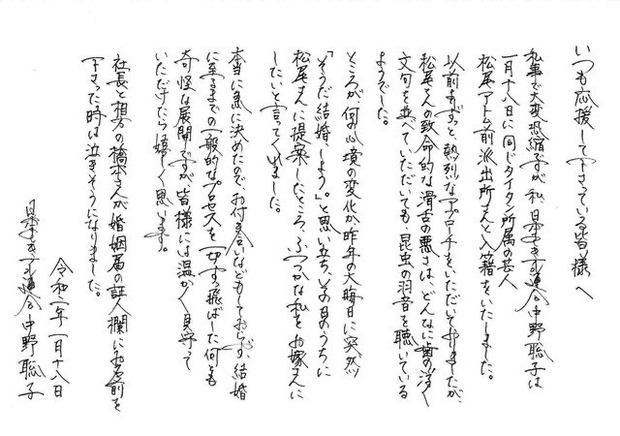 いつも応援して下さっている皆様へ
私事で大変恐縮ですが、私、日本エレキテル連合中野聡子は
一月十八日に同じタイタン所属の芸人
松尾アトム前派出所さんと入籍をいたしました。
以前よりずっと、熱烈なアプローチをいただいておりましたが、
松尾さんの致命的な滑舌の悪さは、どんなに歯の浮く
文句を並べていただいても、昆虫の羽音を聴いている
ようでした。
ところが、何の心境の変化か昨年の大晦日に突然
「そうだ結婚、しよう。」と思い立ち、その日のうちに
松尾さんに提案したところ、ふつつかな私をお嫁さんに
したいと言ってくれました。
本当に急に決めたので、お付き合いなどもしておらず、結婚
に至るまでの一般的なプロセスを一切すっ飛ばした何とも
奇怪な展開ですが、皆様には温かく見守って
いただけたら嬉しく思います。
社長と相方の橋本さんが婚姻届の証人欄にお名前を
下さった時は泣きそうになりました。
令和二年一月十八日
日本エレキテル連合 中野聡子